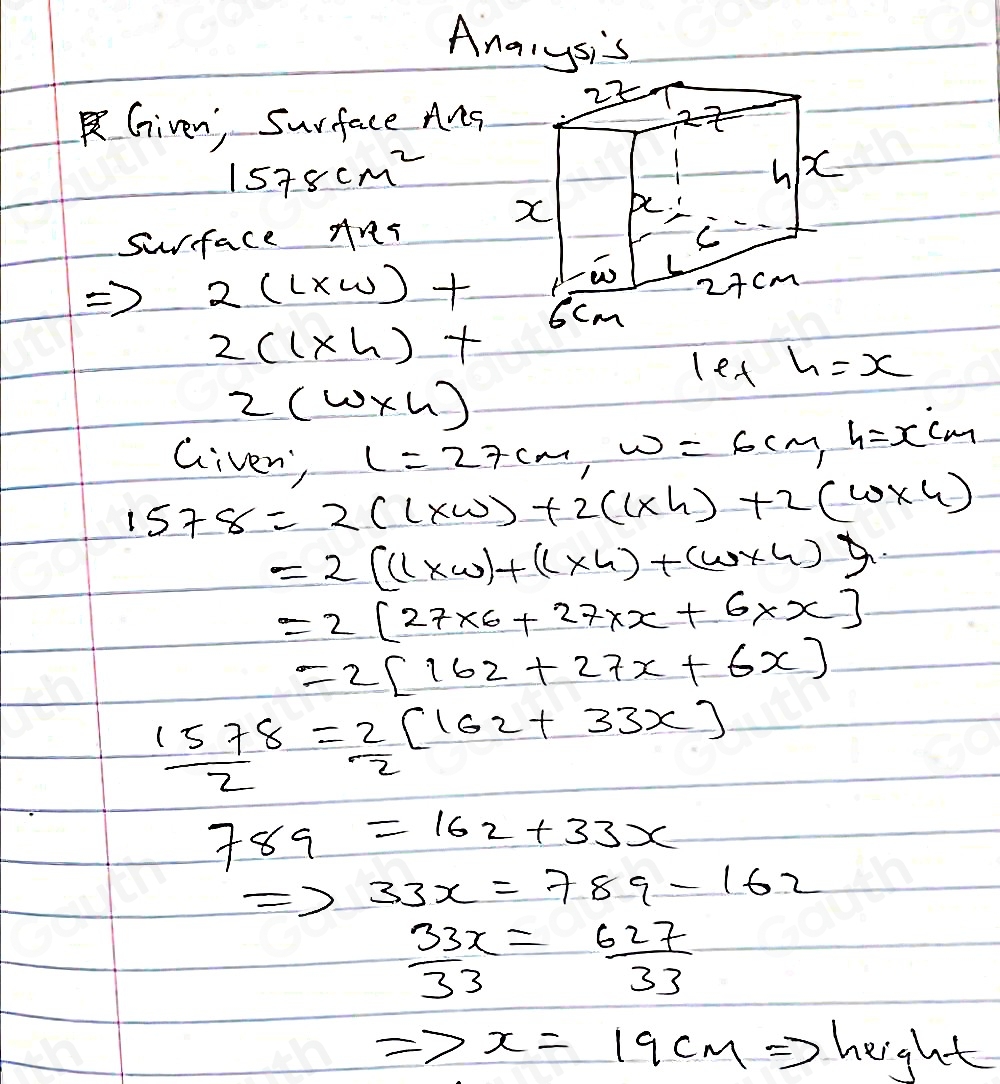 Analysis
Given; Surface Area
1578cm²
Surface Area
=> 2(l×w) +
2(l×h) +
2(w×h)
27
27
x
x
h x
w
L
6
6cm
27cm
let h=x
Given; l=27cm, w=6cm, h=xcm
1578 = 2(l×w)+2(l×h)+2(w×h)
= 2[(l×w)+(l×h)+(w×h)]
= 2[27×6+27×x+6×x]
= 2[162+27x+6x]
1578/2 = 2/2[162+33x]
789 = 162+33x
=> 33x = 789-162
33x/33 = 627/33
=> x = 19cm => height
Gauth